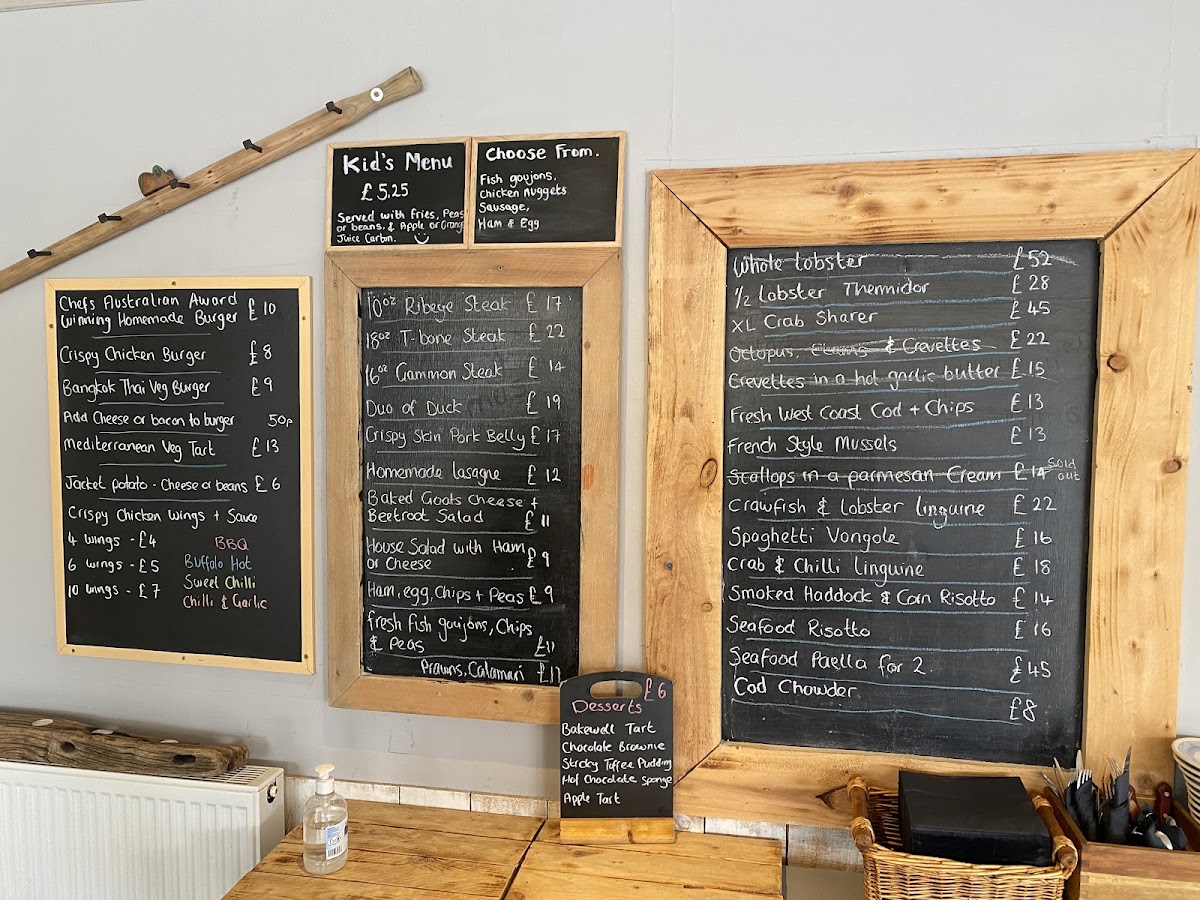 Kid's Menu
£5.25
Served with Fries, Peas
or beans, & Apple or Orange
Juice Carton.
Choose From.
Fish goujons,
Chicken Nuggets
Sausage,
Ham & Egg
Chefs Australian Award
Winning Homemade Burger £10
Crispy Chicken Burger £8
Bangkok Thai Veg Burger £9
Add Cheese or bacon to burger 50p
Mediterranean Veg Tart £13
Jacket potato - Cheese or beans £6
Crispy Chicken Wings + Sauce
4 wings - £4 BBQ
6 wings - £5 Buffalo Hot
Sweet Chilli
10 wings - £7 Chilli & Garlic
10oz Ribeye Steak £17
18oz T-bone Steak £22
16oz Gammon Steak £14
Duo of Duck £19
Crispy Skin Pork Belly £17
Homemade lasagne £12
Baked Goats Cheese +
Beetroot Salad £11
House Salad with Ham
or Cheese £9
Ham, egg, Chips + Peas £9
fresh fish goujons, Chips
& Peas £11
Prawns, Calamari
Desserts £6
Bakewell Tart
Chocolate Brownie
Sticky Toffee Pudding
Hot Chocolate Sponge
Apple Tart
Whole Lobster £52
1/2 Lobster Thermidor £28
XL Crab Sharer £45
Octopus, Clams & Crevettes £22
Crevettes in a hot garlic butter £15
Fresh West Coast Cod + Chips £13
French Style Mussels £13
Scallops in a parmesan Cream £14 Sold out
Crawfish & Lobster linguine £22
Spaghetti Vongole £16
Crab & Chilli Linguine £18
Smoked Haddock & Corn Risotto £14
Seafood Risotto £16
Seafood Paella for 2. £45
Cod Chowder £8